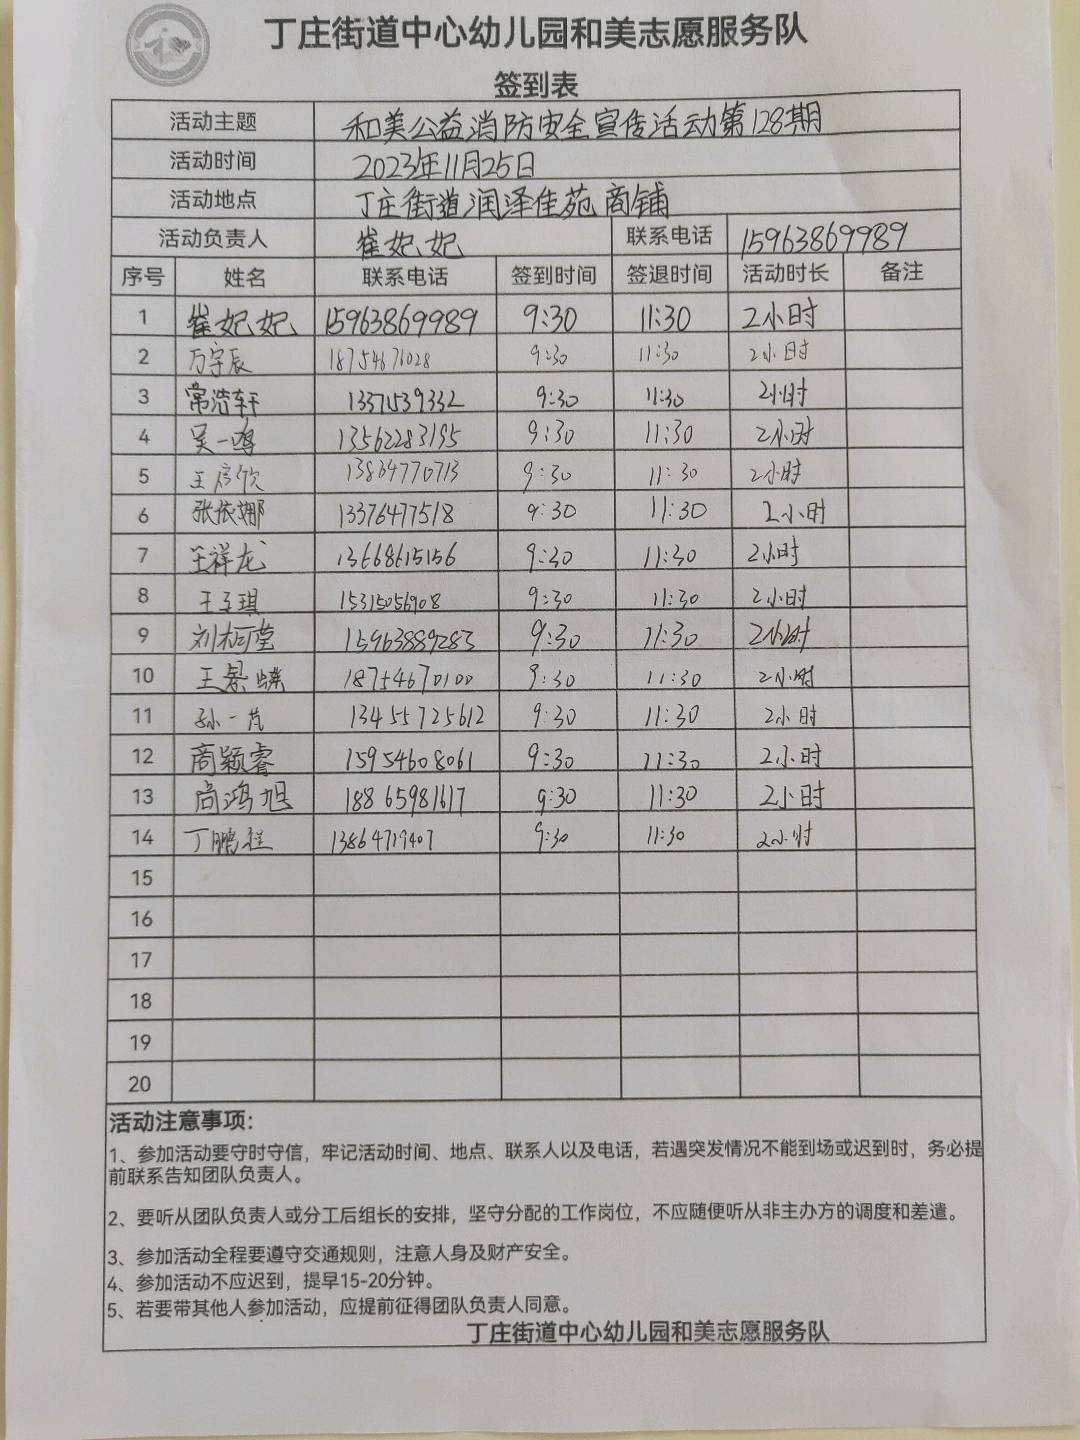 丁庄街道中心幼儿园和美志愿服务队
签到表
活动主题 和美公益消防安全宣传活动第128期
活动时间 2023年11月25日
活动地点 丁庄街道润泽佳苑商铺
活动负责人 崔妃妃 联系电话 15963869989
序号 姓名 联系电话 签到时间 签退时间 活动时长 备注
1 崔妃妃 15963869989 9:30 11:30 2小时
2 万宇辰 18754676028 9:30 11:30 2小时
3 常浩轩 1337539332 9:30 11:30 2小时
4 吴一鸣 13562283195 9:30 11:30 2小时
5 13864770713 9:30 11:30 2小时
6 张依娜 13376477518 9:30 11:30 2小时
7 王祥龙 13668615156 9:30 11:30 2小时
8 15315056908 9:30 11:30 2小时
9 15963889283 9:30 11:30 2小时
10 18754670100 9:30 11:30 2小时
11 孙一芃 13455725612 9:30 11:30 2小时
12 商颖睿 15954608061 9:30 11:30 2小时
13 尚鸿旭 18865981617 9:30 11:30 2小时
14 13864719407 9:30 11:30 2小时
15
16
17
18
19
20
活动注意事项：
1、参加活动要守时守信，牢记活动时间、地点、联系人以及电话，若遇突发情况不能到场或迟到时，务必提
前联系告知团队负责人。
2、要听从团队负责人或分工后组长的安排，坚守分配的工作岗位，不应随便听从非主办方的调度和差遣。
3、参加活动全程要遵守交通规则，注意人身及财产安全。
4、参加活动不应迟到，提早15-20分钟。
5、若要带其他人参加活动，应提前征得团队负责人同意。
丁庄街道中心幼儿园和美志愿服务队